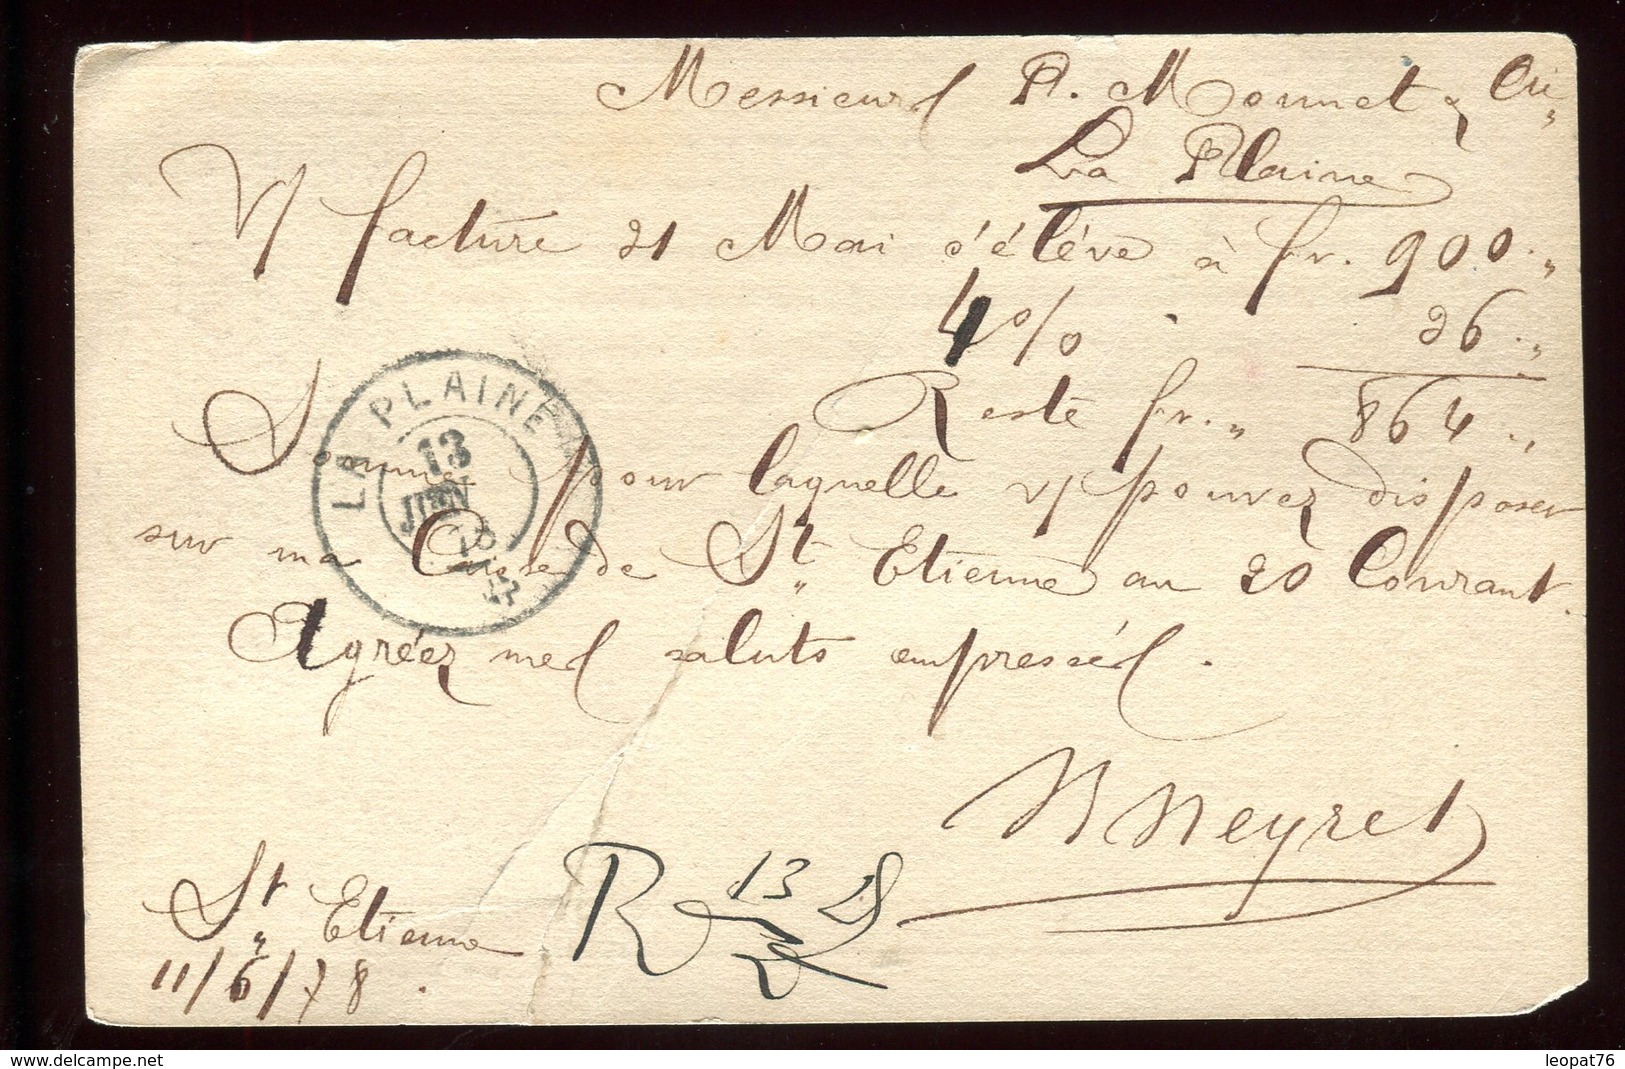 Messieurs A. Monnet & Cie
La Plaine
V/ facture 21 Mai s'élève à fr. 900.„
4% 36.„
Reste fr.„ 864.„
Somme pour laquelle v/ pouvez disposer
sur ma Caisse de St Etienne au 20 Courant.
Agréez mes saluts empressés.
LA PLAINE
13
JUIN
78
Neyret
St Etienne
R 13
11/6/78.
leopat76